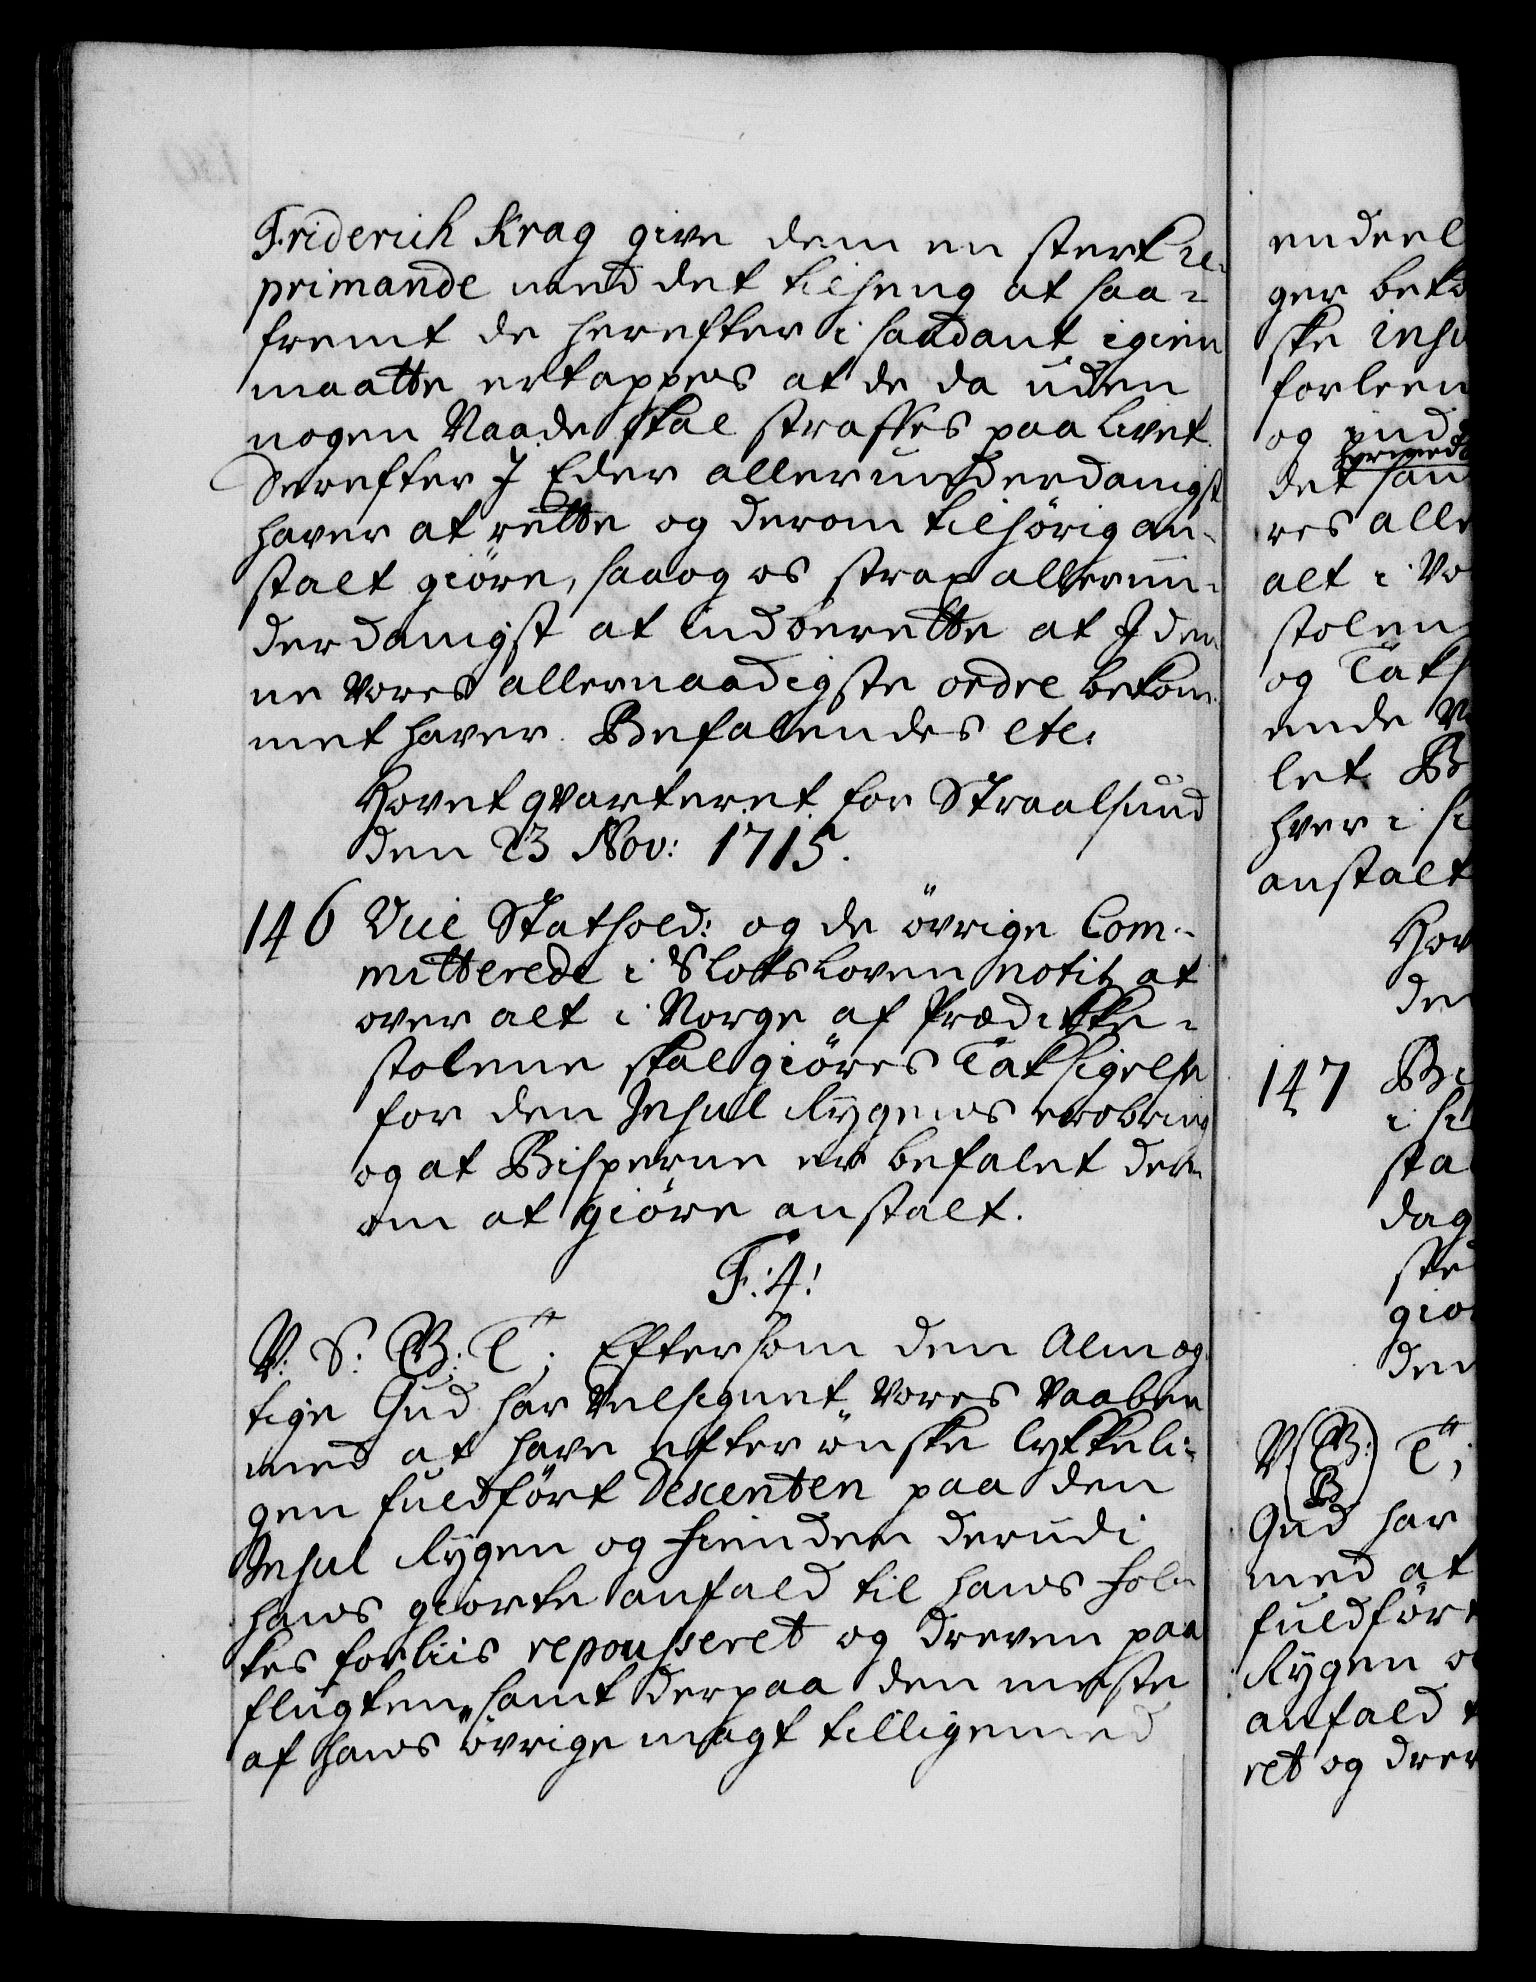 Friderich Krag give dem en sterk re-
primande med det tilheng at saa-
fremt de herefter i saadant igien
maatte ertappes at de da uden
nogen Naade skal straffes paa livet.
Derefter I Eder allerunderdanigst
haver at rette og derom tilhörig an-
stalt giöre, saa og os strax allerun-
derdanigst at indberette at I den-
ne Vores allernaadigste ordre bekom-
met haver. Befalendes etc.
Hovetqvarteret for Straalsund
den 23 Nov: 1715.
146 Vice Stathold: og de övrige Com-
mitterede i Slotsloven notits at
over alt i Norge af Prædikke-
stolene skal giöres Taksigelse
for den Insul Rygens erobring
og at Bisperne er befalet der-
om at giöre anstalt.
F: 4:
V: S: G: T; Eftersom den Almeg-
tige Gud har Velsignet Vores Vaaben
med at have efter önske lykkeli-
gen fuldfört Descenten paa den
Insul Rygen og fienden derudi
hans giorte anfald til hans fol-
kes forliis repousseret og dreven paa
flugten, samt derpaa den meste
af hans övrige magt tilligemed
endeel
ger beko
ske insu
forleen
og ind
hermed
det san
res alle
alt i Vo
stolen
og Taks
ende V
let B
hver i si
anstalt
Hov
den
147 Bi
i si
sta
dag
ske
giör
den
V G: T;
B
Gud har
med at
fuldför
Rygen o
anfald t
ret og drev